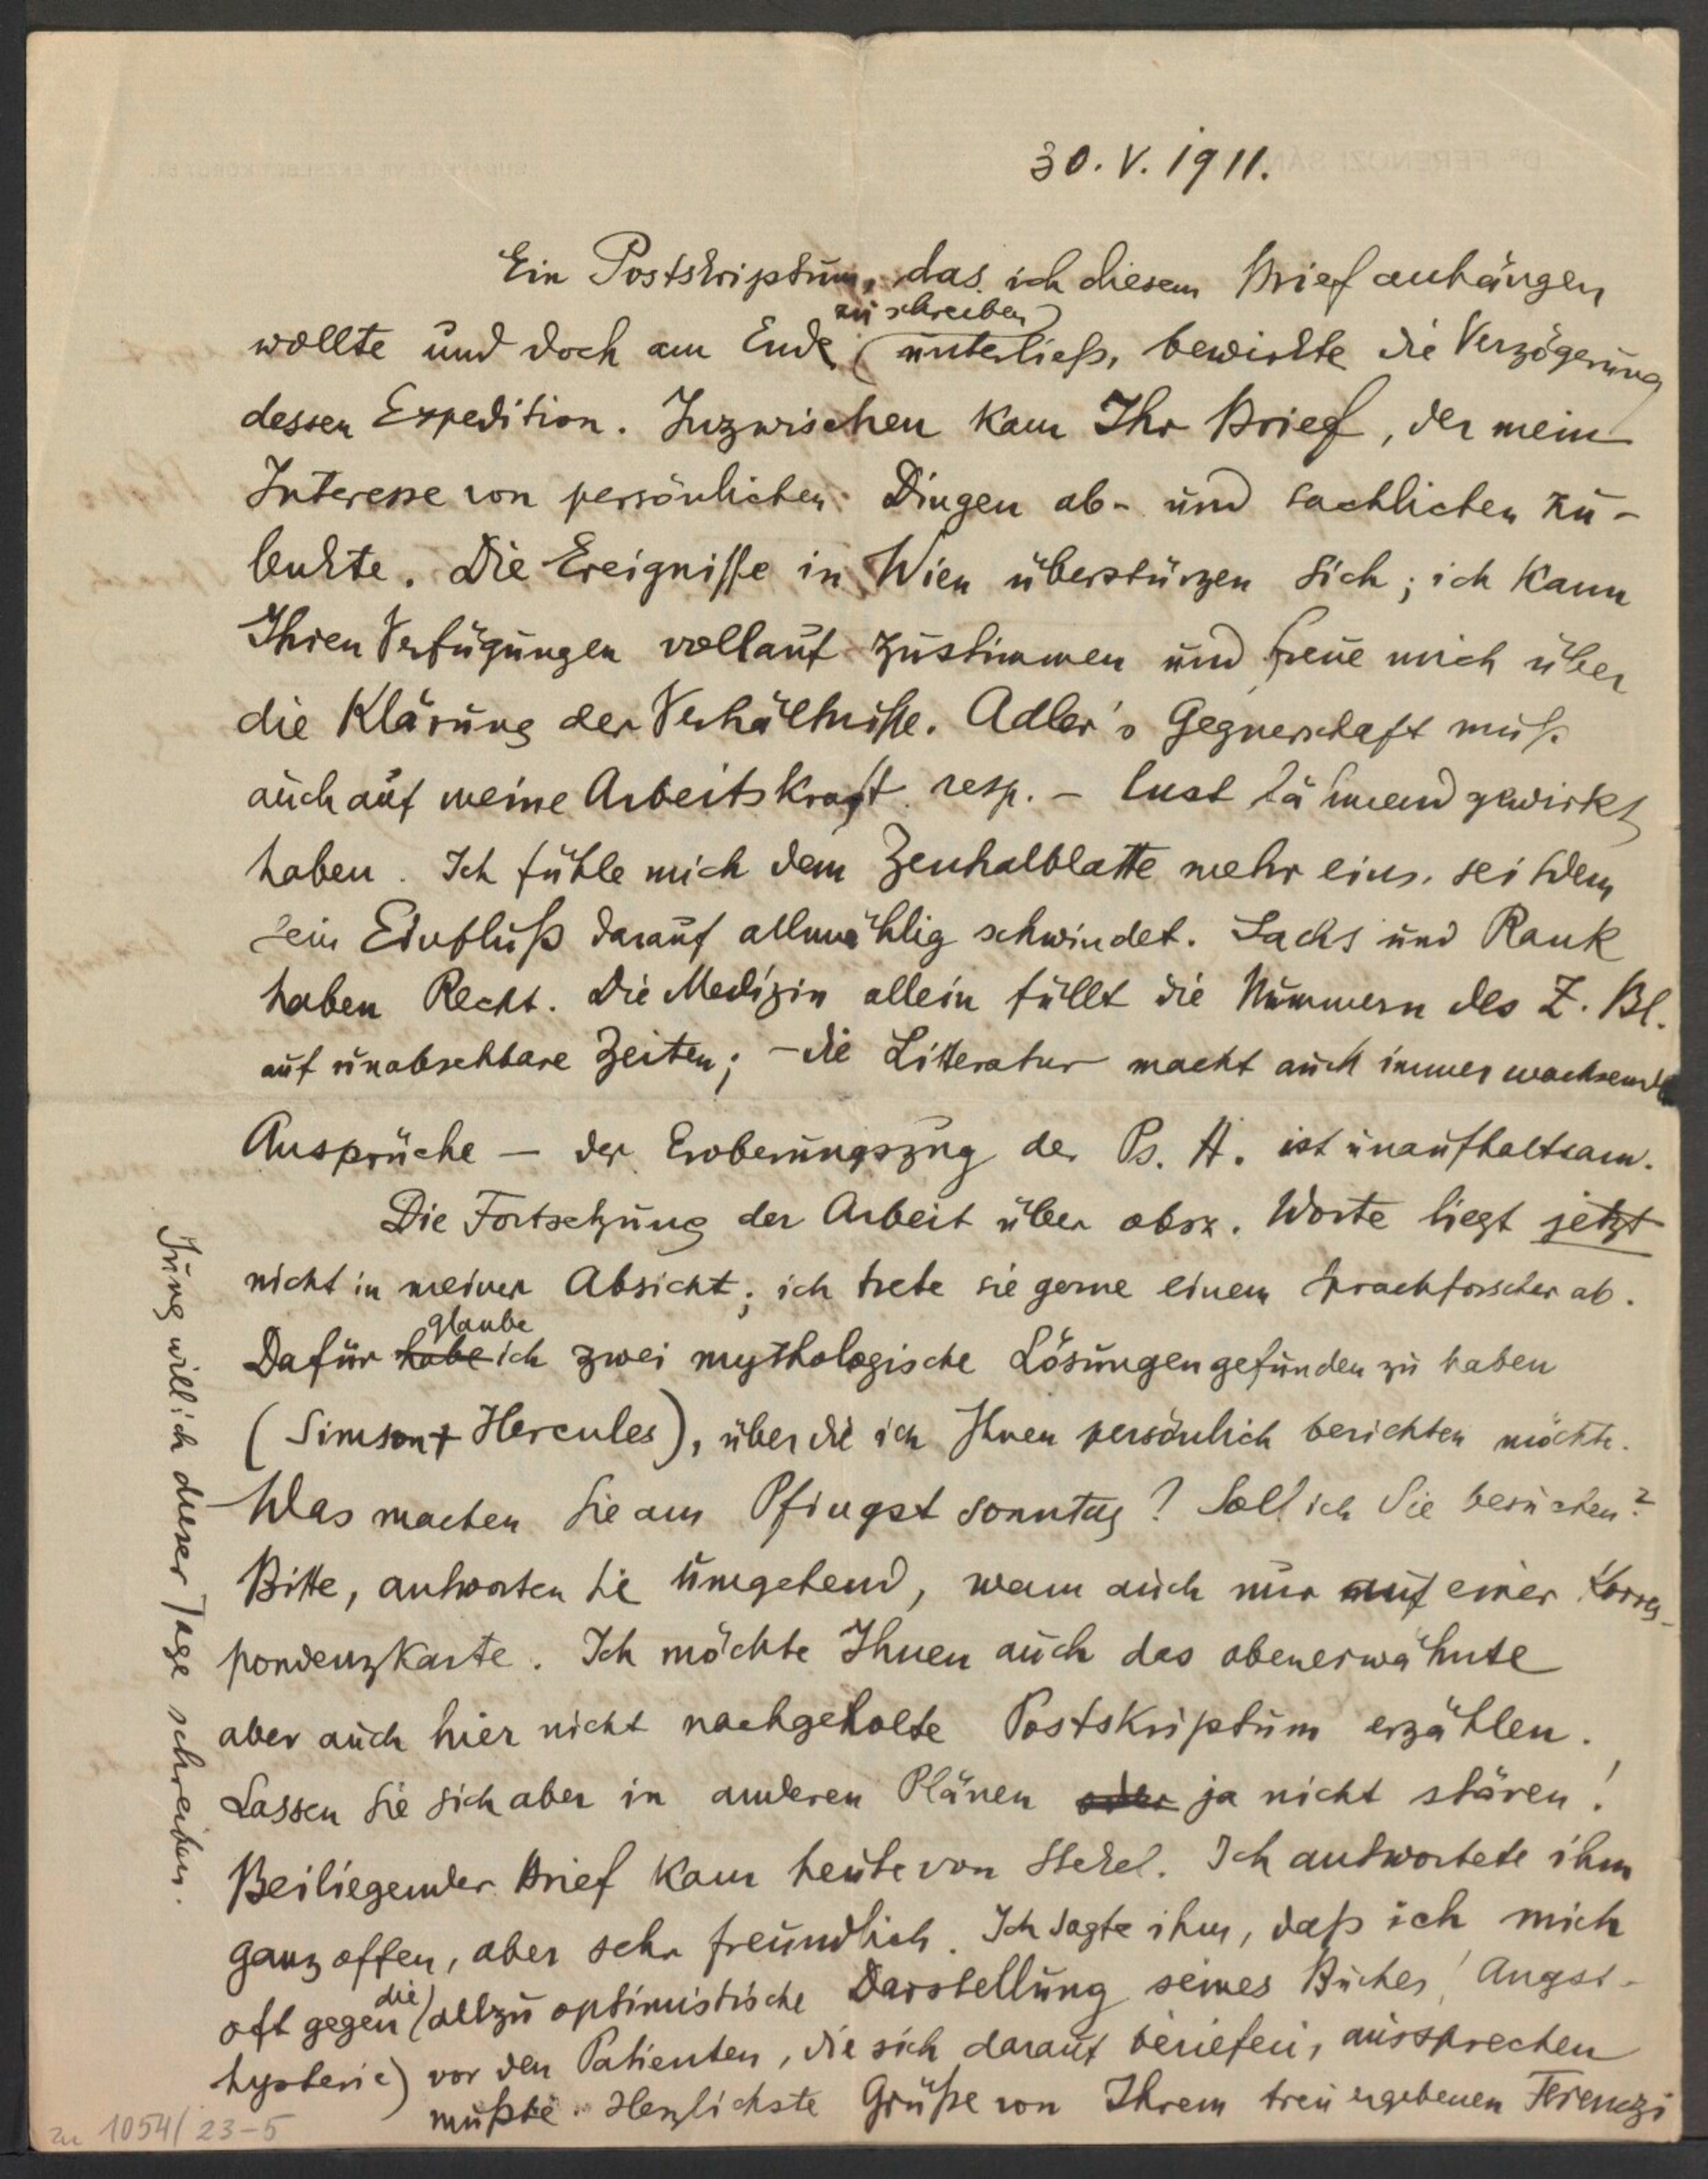 30. V. 1911.
Ein Postskriptum, das ich diesem Brief anhängen
wollte und doch am Ende zu schreiben unterließ, bewirkte die Verzögerung
dessen Expedition. Inzwischen kam Ihr Brief, der mein
Interesse von persönlichen Dingen ab- und sachlichen zu-
lenkte. Die Ereignisse in Wien überstürzen sich; ich kann
Ihren Verfügungen vollauf zustimmen und freue mich über
die Klärung der Verhältnisse. Adler's Gegnerschaft muß
auch auf meine Arbeitskraft resp. - lust lähmend gewirkt
haben. Ich fühle mich dem Zentralblatte mehr eins, seitdem
sein Einfluß darauf allmählig schwindet. Sachs und Rank
haben Recht. Die Medizin allein füllt die Nummern des Z. Bl.
auf unabsehbare Zeiten; - die Litteratur macht auch immer wachsende
Ansprüche — der Eroberungszug der Ps. A. ist unaufhaltsam.
Die Fortsetzung der Arbeit über obsz. Worte liegt jetzt
nicht in meiner Absicht; ich trete sie gerne einem Sprachforscher ab.
Dafür habe glaube ich zwei mythologische Lösungen gefunden zu haben
(Simson + Hercules), über die ich Ihnen persönlich berichten möchte.
Was machen Sie am Pfingstsonntag? Soll ich Sie besuchen?
Bitte, antworten Sie umgehend, wenn auch nur auf einer Korres-
pondenzkarte. Ich möchte Ihnen auch das obenerwähnte
aber auch hier nicht nachgeholte Postskriptum erzählen.
Lassen Sie sich aber in anderen Plänen oder ja nicht stören!
Beiliegender Brief kam heute von Stekel. Ich antwortete ihm
ganz offen, aber sehr freundlich. Ich sagte ihm, daß ich mich
oft gegen die allzu optimistische Darstellung seines Buches (Angst-
hysterie) vor den Patienten, die sich darauf beriefen, aussprechen
mußte. Herzlichste Grüße von Ihrem treu ergebenen Ferenczi
Jung will ich dieser Tage schreiben.
zu 1054/23-5